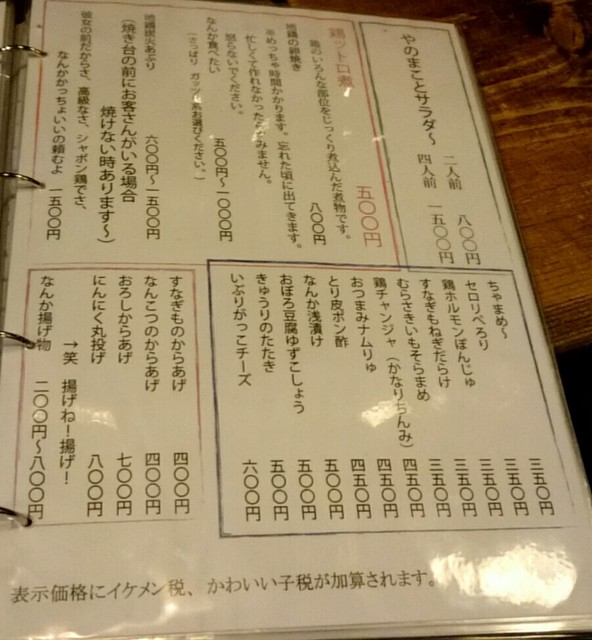 やのまことサラダ〜
二人前 八〇〇円
四人前 一五〇〇円
鶏ットロ煮 五〇〇円
鶏のいろんな部位をじっくり煮込んだ煮物です。
地鶏の卵焼き 八〇〇円
※めっちゃ時間かかります。忘れた頃に出てきます。
忙しくて作れなかったらすみません。
怒らないでください。
なんか食べたい 五〇〇円〜一〇〇〇円
（さっぱり ガッツリ系お選びください。）
地鶏炭火あぶり 六〇〇円〜一五〇〇円
（焼き台の前にお客さんがいる場合
焼けない時あります〜）
彼女の前だからさ、高級なさ、シャポン鶏でさ、
なんかかっちょいいの頼むよ 一五〇〇円
ちゃまめ〜 三五〇円
セロリぺろり 三五〇円
鶏ホルモンぽんじゅ 三五〇円
すなぎもねぎだらけ 三五〇円
むらさきいもそらまめ 四五〇円
鶏チャンジャ（かなりちんみ） 四五〇円
おつまみナムりゅ 四五〇円
とり皮ポン酢 五〇〇円
なんか浅漬け 五〇〇円
おぼろ豆腐ゆずこしょう 五〇〇円
きゅうりのたたき 五〇〇円
いぶりがっこチーズ 六〇〇円
すなぎものからあげ 四〇〇円
なんこつのからあげ 四〇〇円
おろしからあげ 七〇〇円
にんにく丸投げ 八〇〇円
→笑 揚げね！揚げ！
なんか揚げ物 二〇〇円〜八〇〇円
表示価格にイケメン税、かわいい子税が加算されます。